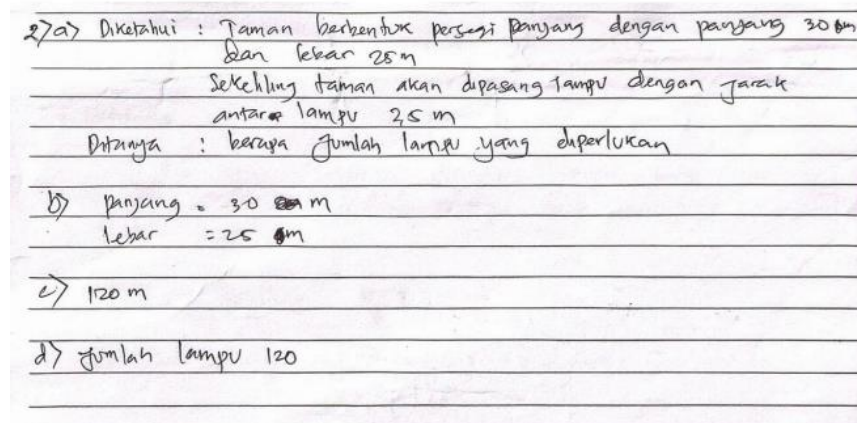 2) a) Diketahui : Taman berbentuk persegi panjang dengan panjang 30 m
dan lebar 25 m
Sekeliling taman akan dipasang lampu dengan jarak
antara lampu 2,5 m
Ditanya : berapa jumlah lampu yang diperlukan
b) panjang = 30 m
lebar = 25 m
c) 120 m
d) jumlah lampu 120